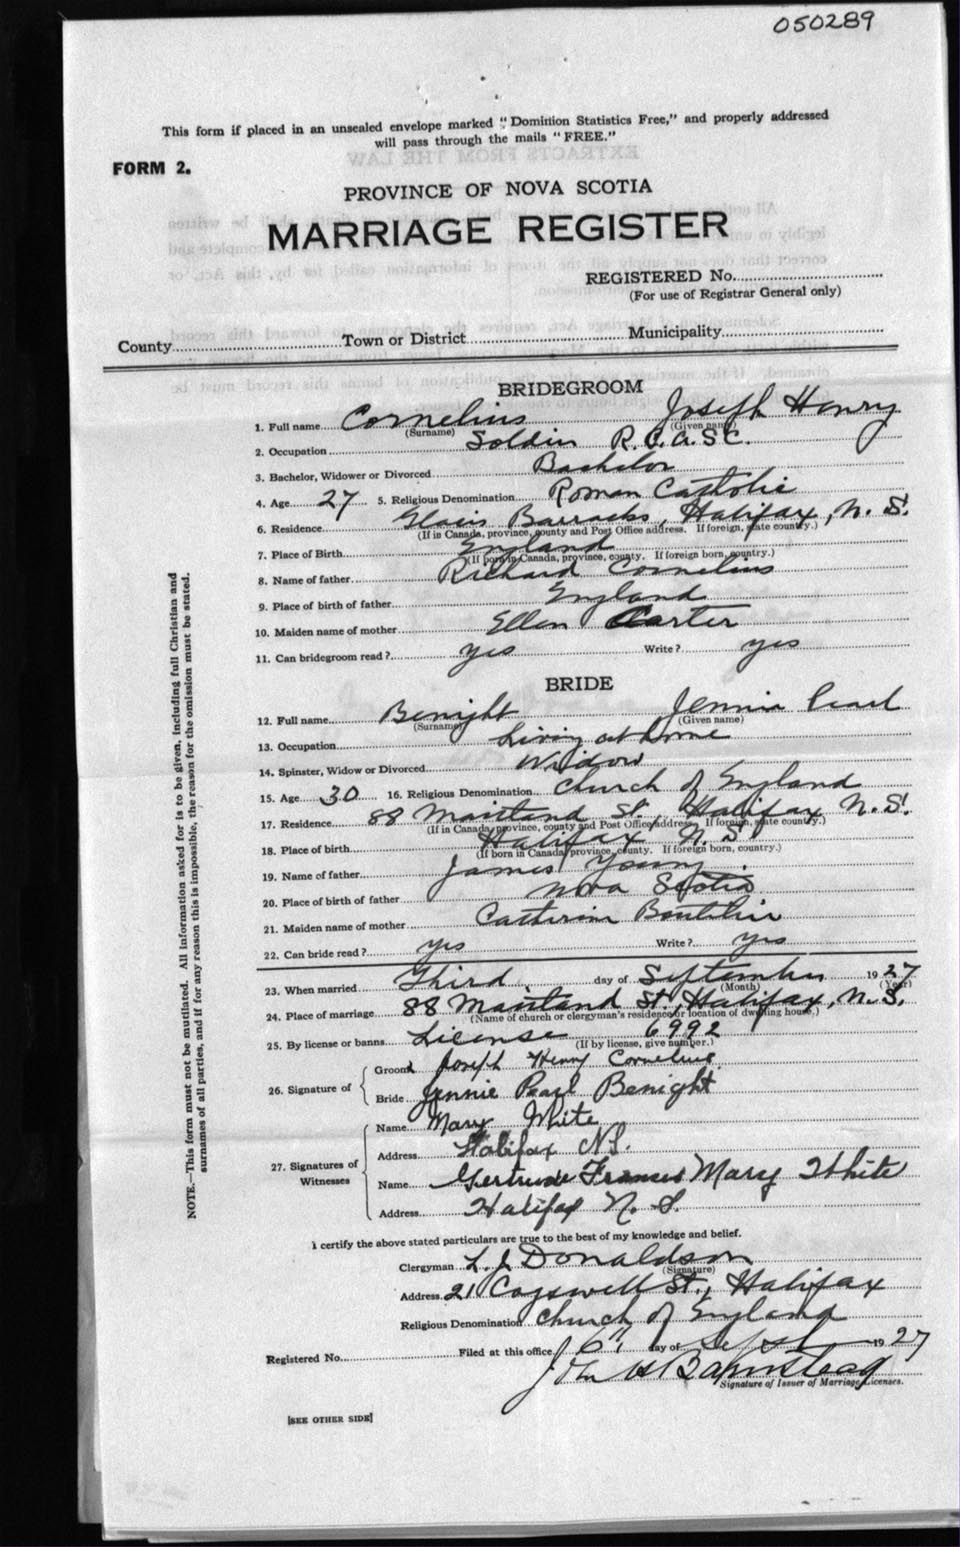 050289
This form if placed in an unsealed envelope marked "Dominion Statistics Free," and properly addressed
will pass through the mails "FREE."
FORM 2.
PROVINCE OF NOVA SCOTIA
MARRIAGE REGISTER
REGISTERED No.
(For use of Registrar General only)
County Town or District Municipality
BRIDEGROOM
1. Full name Cornelius Joseph Henry
(Surname) (Given name)
2. Occupation Soldier R.C.A.S.C.
3. Bachelor, Widower or Divorced Bachelor
4. Age 27 5. Religious Denomination Roman Catholic
6. Residence Glacis Barracks, Halifax, N.S.
(If in Canada, province, county and Post Office address. If foreign, state country.)
7. Place of Birth England
(If born in Canada, province, county. If foreign born, country.)
8. Name of father Richard Cornelius
9. Place of birth of father England
10. Maiden name of mother Ellen Carter
11. Can bridegroom read? yes Write? yes
BRIDE
12. Full name Benight Jennie Pearl
(Surname) (Given name)
13. Occupation Living at home
14. Spinster, Widow or Divorced Widow
15. Age 30 16. Religious Denomination Church of England
17. Residence 88 Maitland St., Halifax N.S.
(If in Canada, province, county and Post Office address. If foreign, state country.)
18. Place of birth Halifax N.S.
(If born in Canada, province, county. If foreign born, country.)
19. Name of father James Young
20. Place of birth of father Nova Scotia
21. Maiden name of mother Catherine Boutilier
22. Can bride read? yes Write? yes
23. When married Third day of September 1927
(Month) (Year)
24. Place of marriage 88 Maitland St., Halifax, N.S.
(Name of church or clergyman's residence or location of dwelling house.)
25. By license or banns License 6992
(If by license, give number.)
26. Signature of
Groom Joseph Henry Cornelius
Bride Jennie Pearl Benight
27. Signatures of Witnesses
Name Mary White
Address Halifax NS.
Name Gertrude Frances Mary White
Address Halifax N.S.
I certify the above stated particulars are true to the best of my knowledge and belief.
Clergyman L. J. Donaldson
(Signature)
Address 21 Cogswell St., Halifax
Religious Denomination Church of England
Registered No. Filed at this office 6th day of Sept 1927
Signature of Issuer of Marriage Licenses.
[SEE OTHER SIDE]
NOTE.—This form must not be mutilated. All information asked for is to be given, including full Christian and
surnames of all parties, and if for any reason this is impossible, the reason for the omission must be stated.